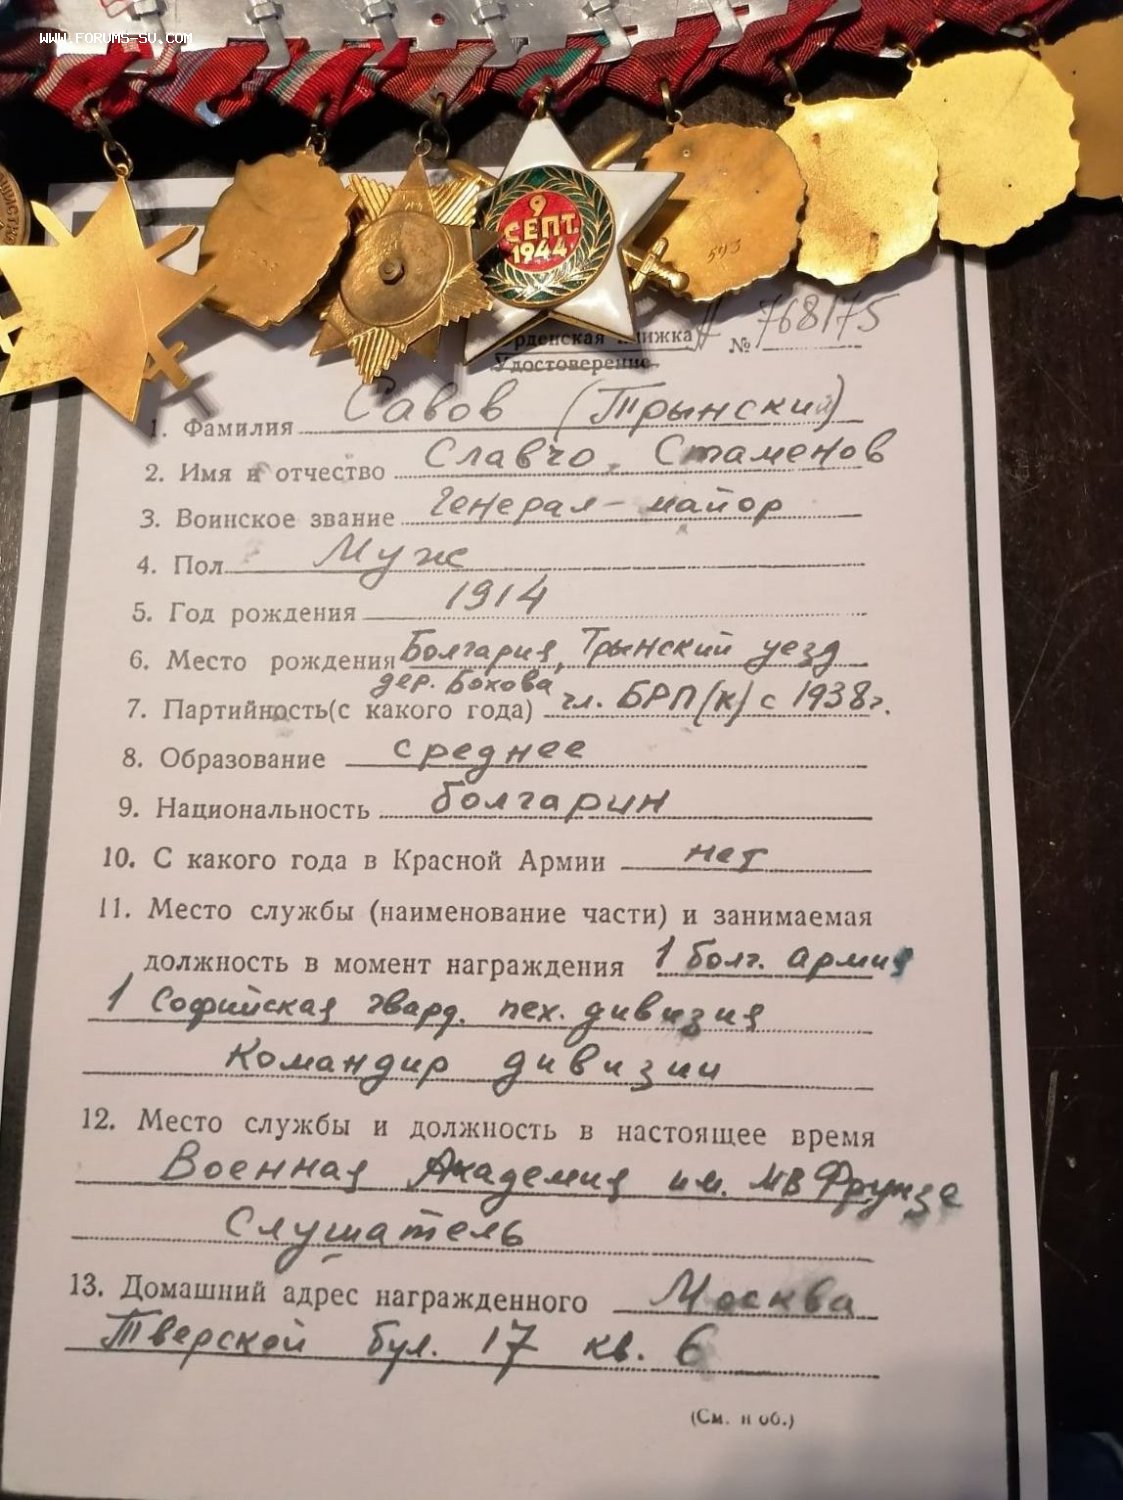 WWW.FORUMS-SU.COM
9
СЕПТ.
1944
593
рденская книжка А № 768175
Удостоверение
1. Фамилия Савов (Трынский)
2. Имя и отчество Славчо Стаменов
3. Воинское звание Генерал-майор
4. Пол Муж
5. Год рождения 1914
6. Место рождения Болгария, Трынский уезд
дер. Бохова
7. Партийность(с какого года) чл. БРП(к) с 1938г.
8. Образование среднее
9. Национальность болгарин
10. С какого года в Красной Армии нет
11. Место службы (наименование части) и занимаемая
должность в момент награждения 1 болг. армия
1 Софийская гвард. пех. дивизия
Командир дивизии
12. Место службы и должность в настоящее время
Военная Академия им. МВ Фрунзе
Слушатель
13. Домашний адрес награжденного Москва
Тверской бул. 17 кв. 6
(См. н об.)